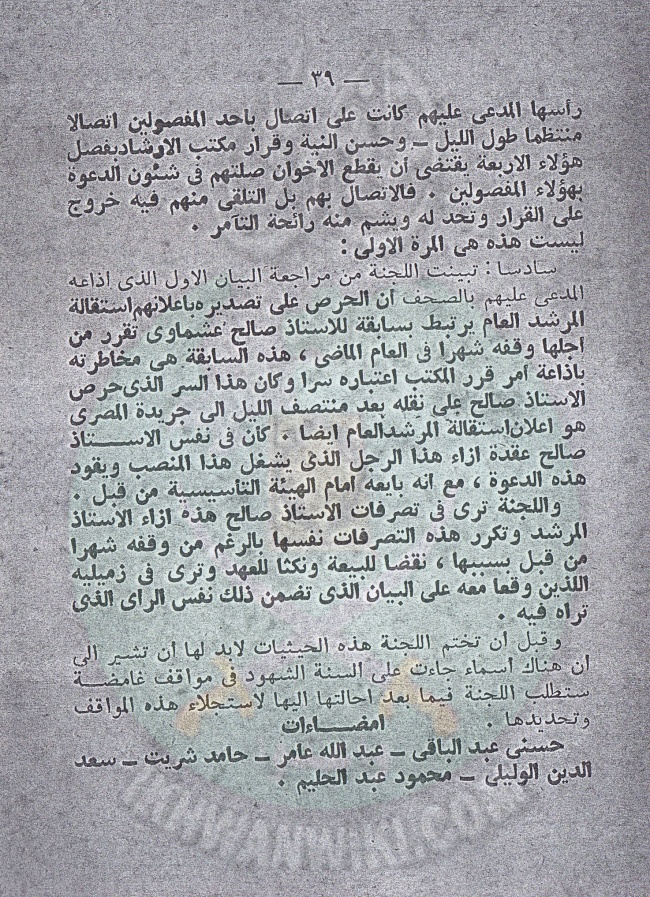 — ٣٩ —
رأسها المدعى عليهم كانت على اتصال بأحد المفصولين اتصالا
منتظما طول الليل ــ وحسن النية وقرار مكتب الارشاد بفصل
هؤلاء الاربعة يقتضى أن يقطع الاخوان صلتهم فى شئون الدعوة
بهؤلاء المفصولين . فالاتصال بهم بل التلقى منهم فيه خروج
على القرار وتحد له ويشم منه رائحة التآمر .
ليست هذه هى المرة الاولى :
سادسا : تبينت اللجنة من مراجعة البيان الاول الذى اذاعه
المدعى عليهم بالصحف أن الحرص على تصديره باعلانهم استقالة
المرشد العام يرتبط بسابقة للاستاذ صالح عشماوى تقرر من
أجلها وقفه شهرا فى العام الماضى ، هذه السابقة هى مخاطرته
باذاعة أمر قرر المكتب اعتباره سرا وكان هذا السر الذى حرص
الاستاذ صالح على نقله بعد منتصف الليل الى جريدة المصرى
هو اعلان استقالة المرشد العام أيضا . كان فى نفس الاستاذ
صالح عقدة ازاء هذا الرجل الذى يشغل هذا المنصب ويقود
هذه الدعوة ، مع أنه بايعه أمام الهيئة التأسيسية من قبل .
واللجنة ترى فى تصرفات الاستاذ صالح هذه ازاء الاستاذ
المرشد وتكرر هذه التصرفات نفسها بالرغم من وقفه شهرا
من قبل بسببها ، نقضا للبيعة ونكثا للعهد وترى فى زميليه
اللذين وقعا معه على البيان الذى تضمن ذلك نفس الرأى الذى
تراه فيه .
وقبل أن تختم اللجنة هذه الحيثيات لابد لها أن تشير الى
أن هناك أسماء جاءت على السنة الشهود فى مواقف غامضة
ستطلب اللجنة فيما بعد احالتها اليها لاستجلاء هذه المواقف
وتحديدها .
امضاءات
حسنى عبد الباقى ــ عبد الله عامر ــ حامد شريت ــ سعد
الدين الوليلى ــ محمود عبد الحليم .
IKHWANWIKI.COM